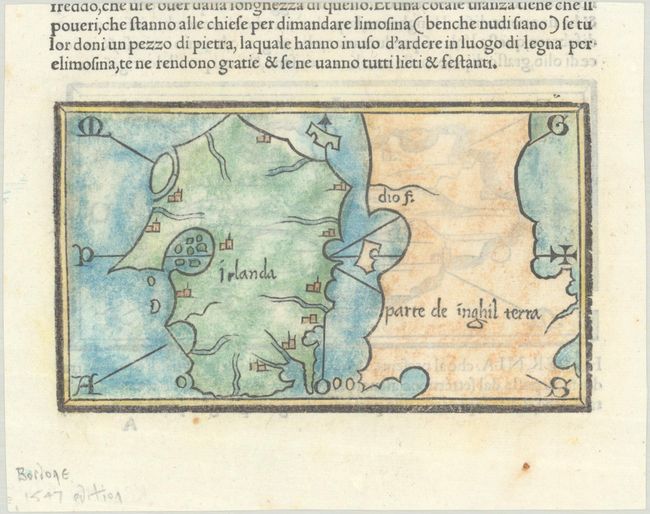 freddo, che di e over dalla longhezza di quello. Et una cotale usanza tiene che li
poueri, che stanno alle chiese per dimandare limosina ( benche nudi siano ) se tu
lor doni un pezzo di pietra, laquale hanno in uso d'ardere in luogo di legna per
elimosina, te ne rendono gratie & se ne uanno tutti lieti & festanti.
M G
dio f.
P
irlanda
D
parte de inghil terra
A S
Bordone
1547 edition